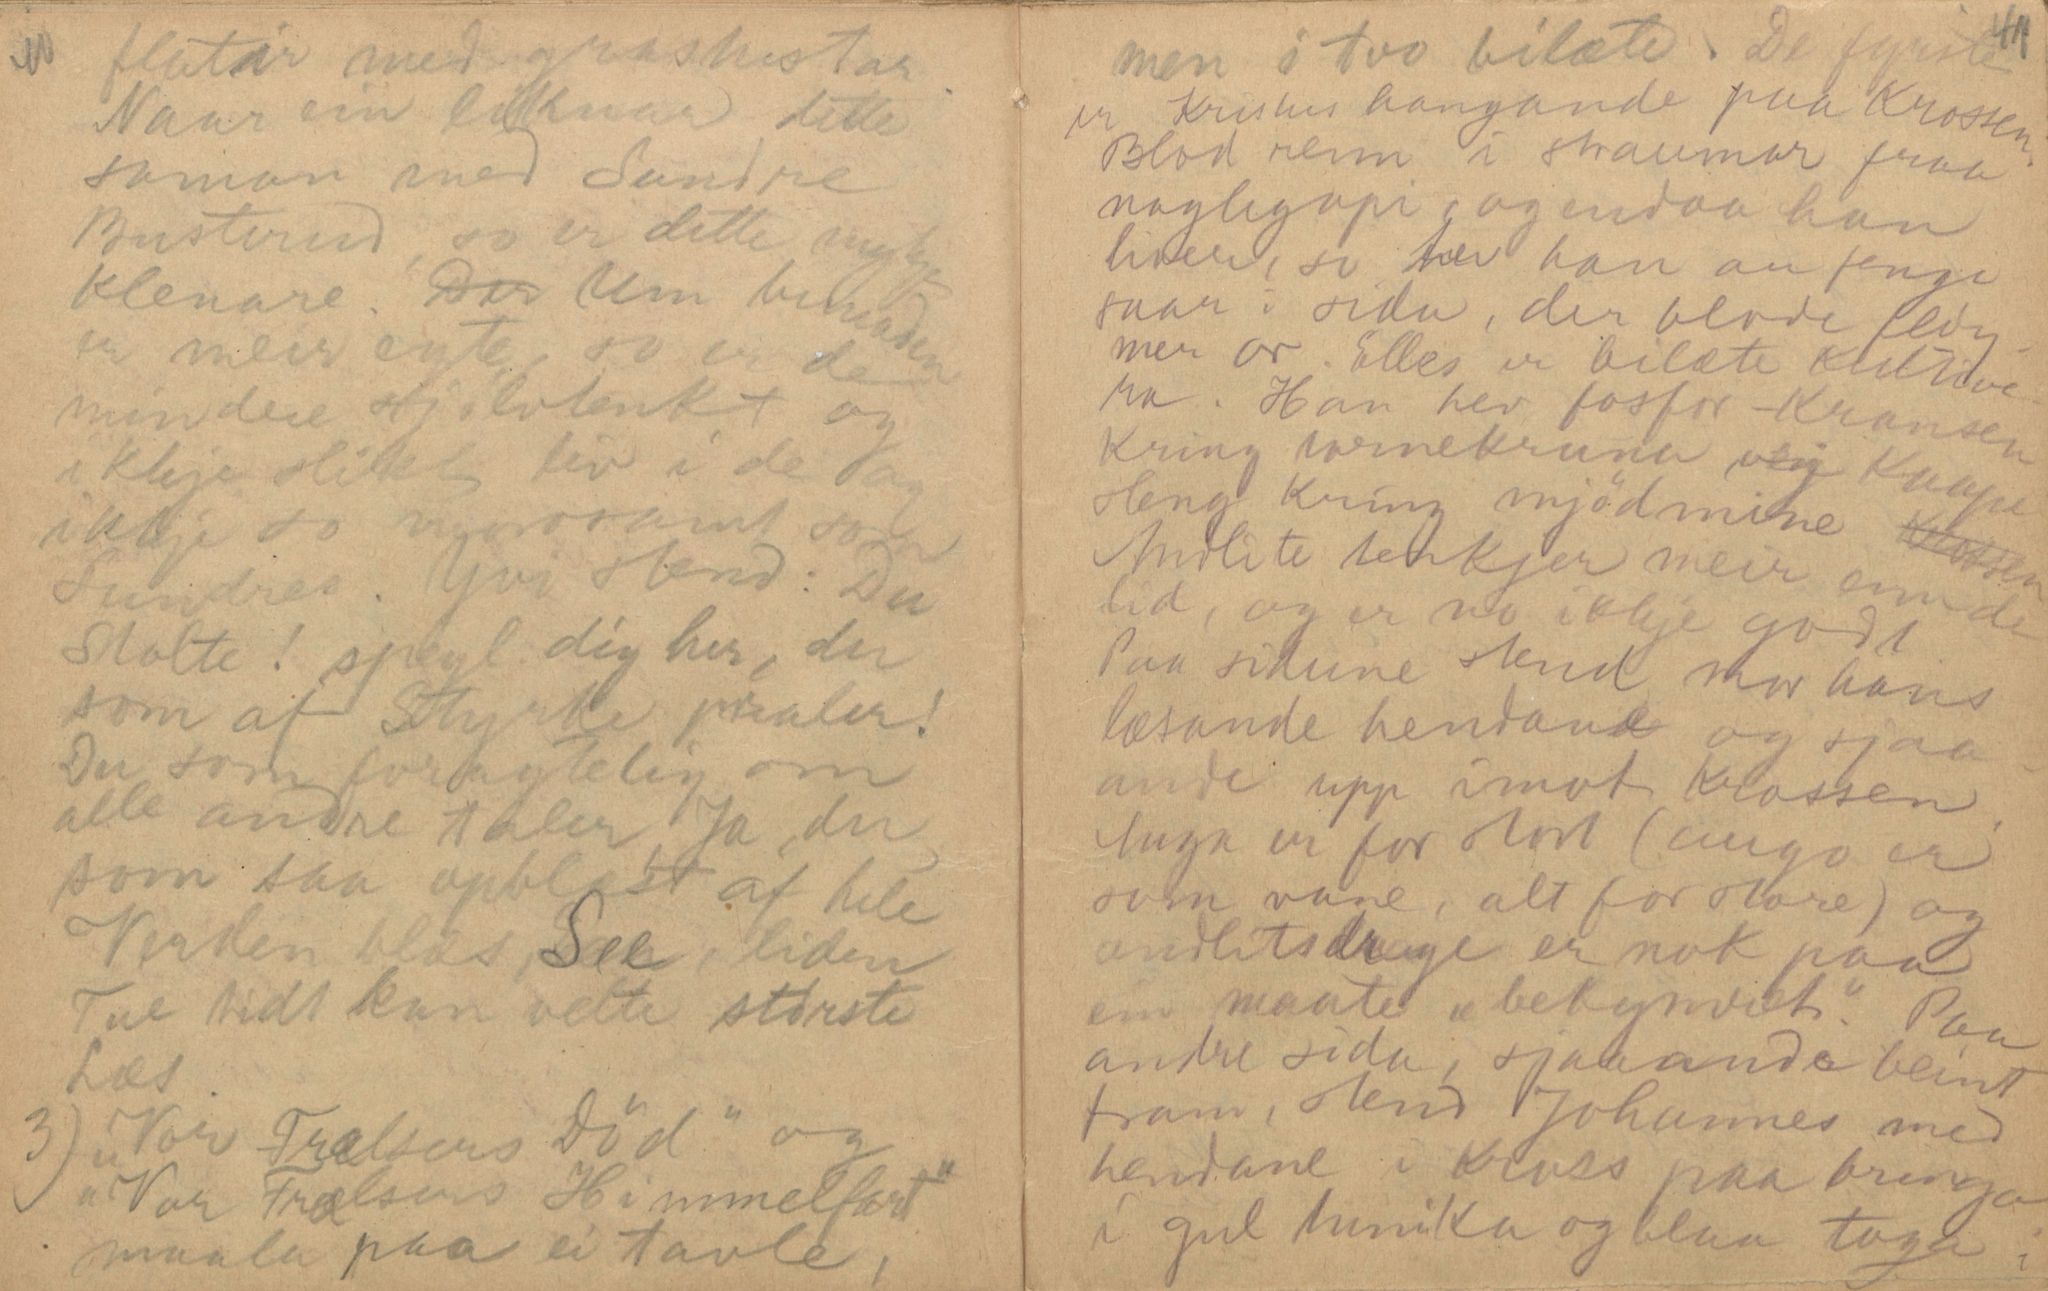 flatar med grashestar.
Naar ein liknar dette
saman med Sundre
Busterud, so er dette mykje
klenare. Der Um bunaden
er meir egte, so er de
mindre sjölvtenkt og
ikkje slikt liv i de og
ikkje so morosamt som
Sundres. Yvi stend: Du
Stolte! speyl dig her, du
som af Styrke praler!
Du som foragtelig om
alle andre taler, Ja, du
som saa opblæst af hele
Verden blæs, See, liden
Tue tidt kan velte störste
Læs.
3) "Vor Frælsers Död" og
"Vor Frælsers Himmelfart"
maala paa ei tavle,
41
men i tvo bilæte. De fyrste
er Kristus hangande paa Krossen.
Blod renn i straumar fraa
naglegapi, og endaa han
liver, so hev han au fenge
saar i sida, der blode fløy-
mer or. Elles er bilæte kultive-
ra. Han hev fosfor-Kransen
Kring tornekruna og Kaape
sleng Kring mjödmine Krossen
Andlite tenkjer meir enn de
lid, og er no ikkje godt
Paa sidune stend mor hans
læsande hendane og sjaa-
ande upp imot Krossen.
Auga er for stort (augo er
som vane, alt for store) og
andlitsdrage er nok paa
ein maate "bekymret". Paa
andre sida, sjaaande beint
fram, stend Johannes med
hendane i Kross paa bringa
i gul tunika og blaa toga i